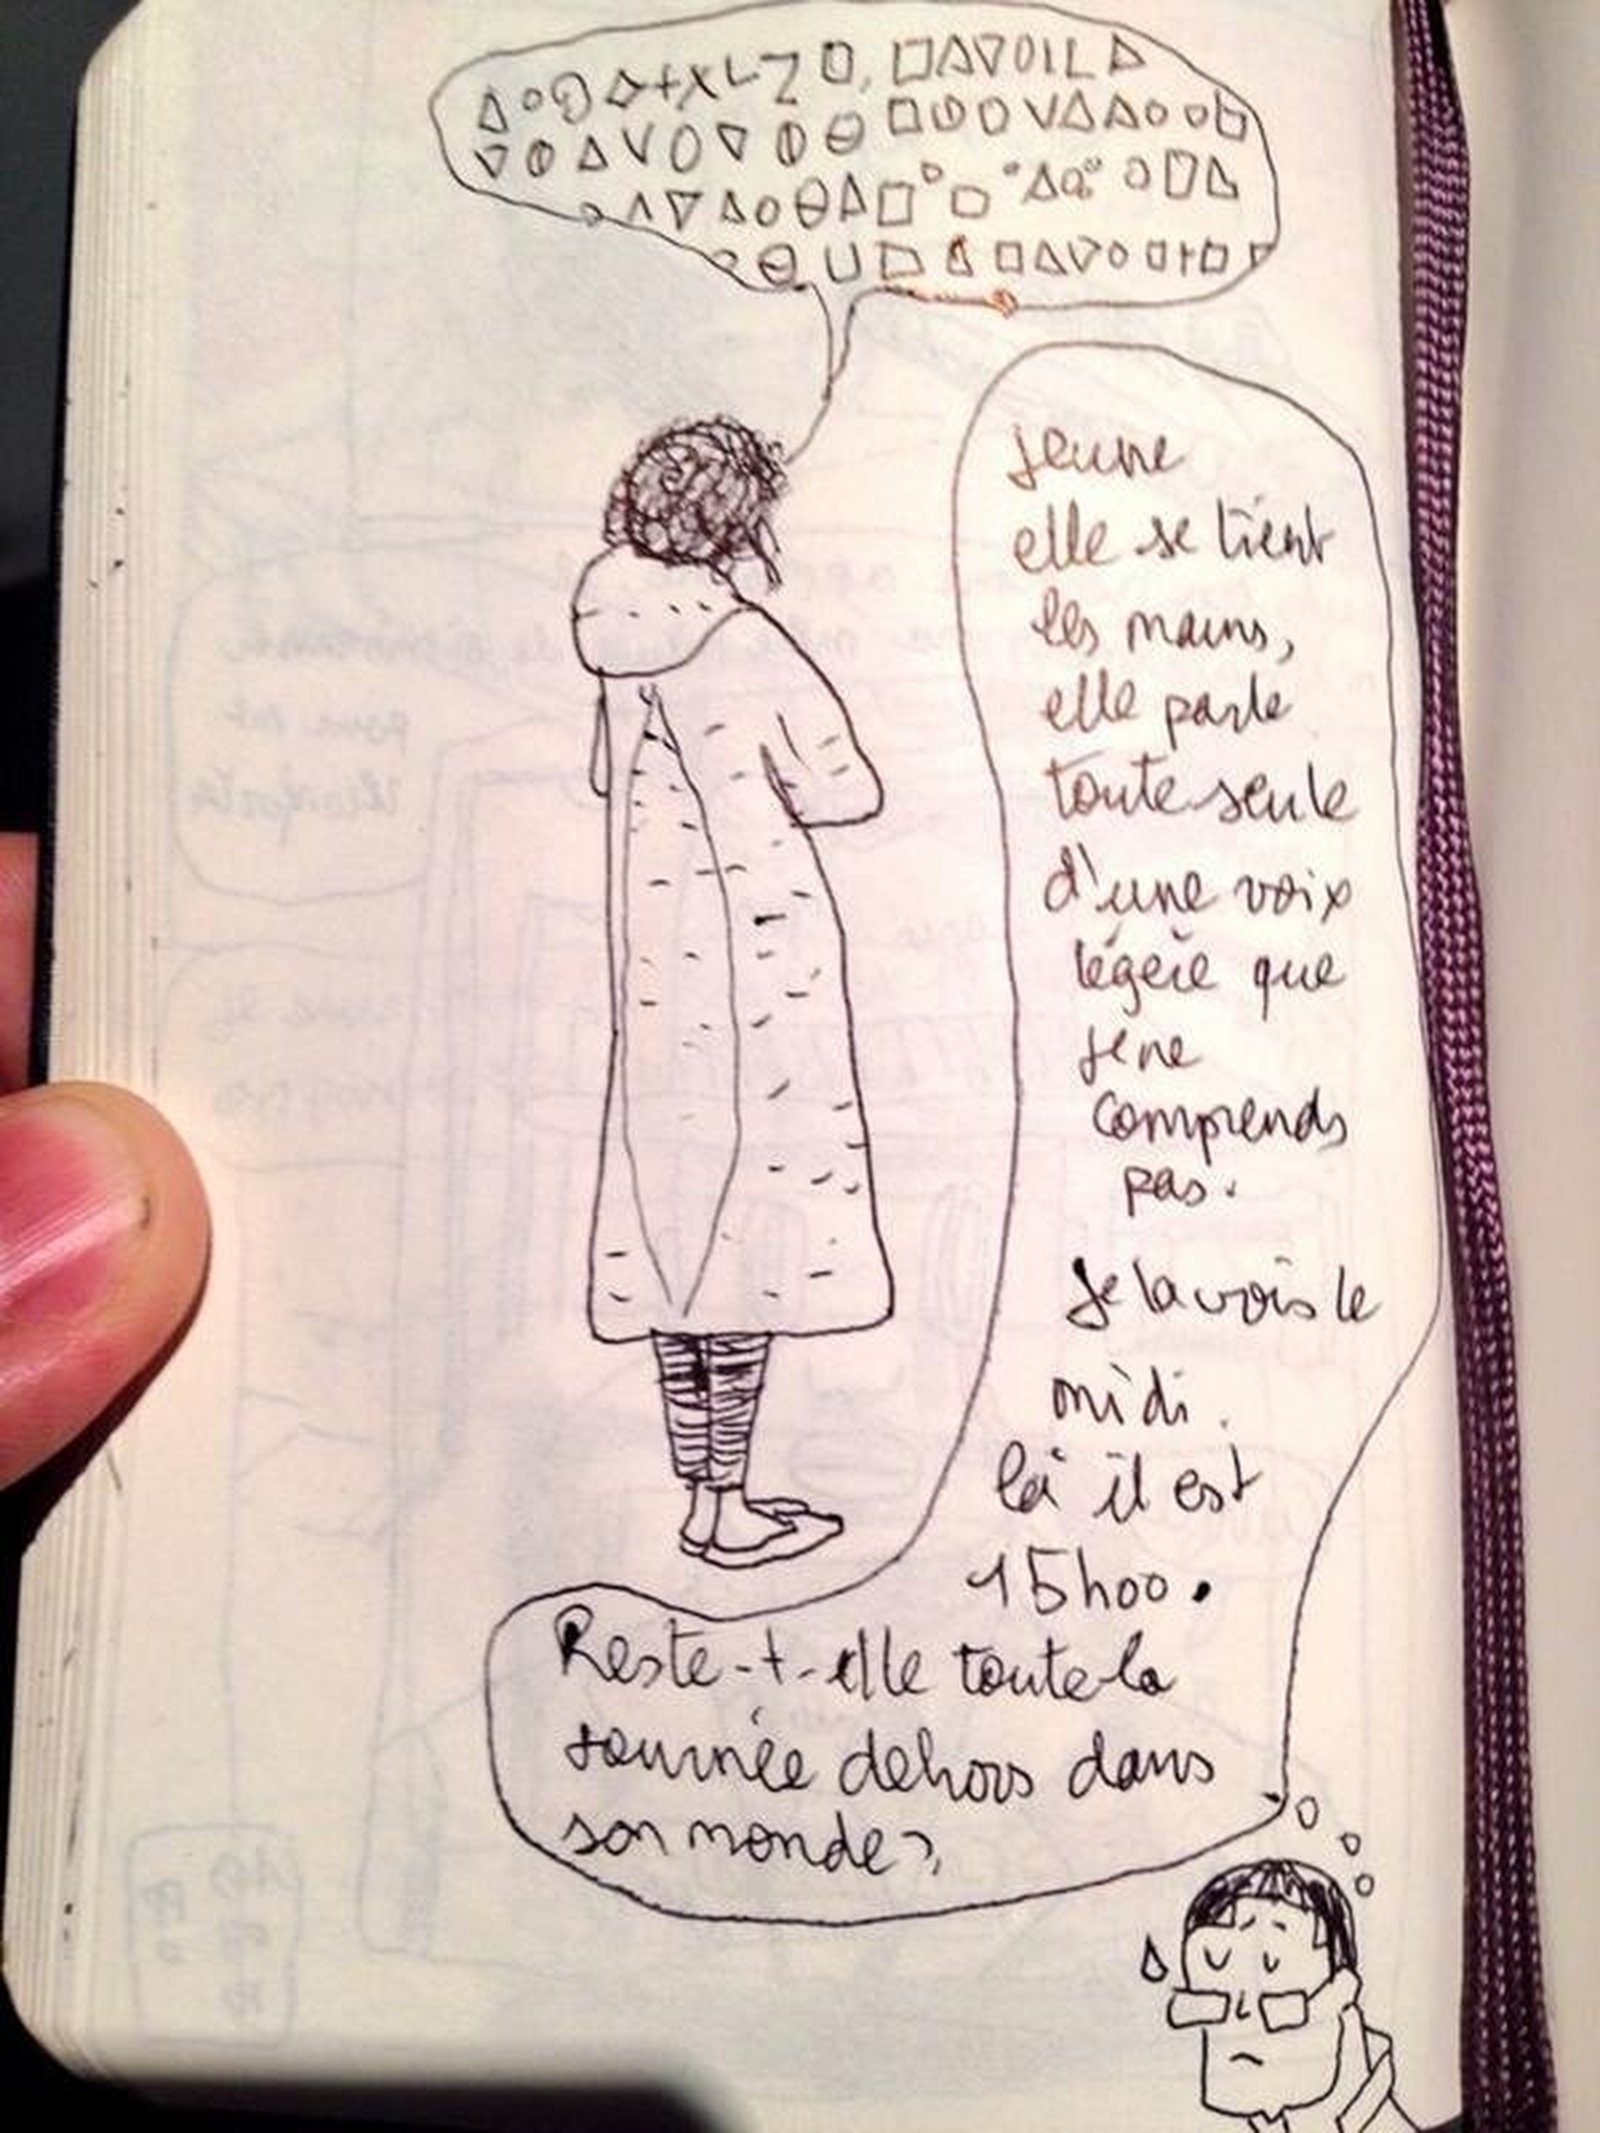 jeune
elle se tient
les mains,
elle parle
toute seule
d'une voix
légère que
je ne
comprends
pas.
Je la vois le
midi.
là il est
15h00.
Reste-t-elle toute la
journée dehors dans
son monde?